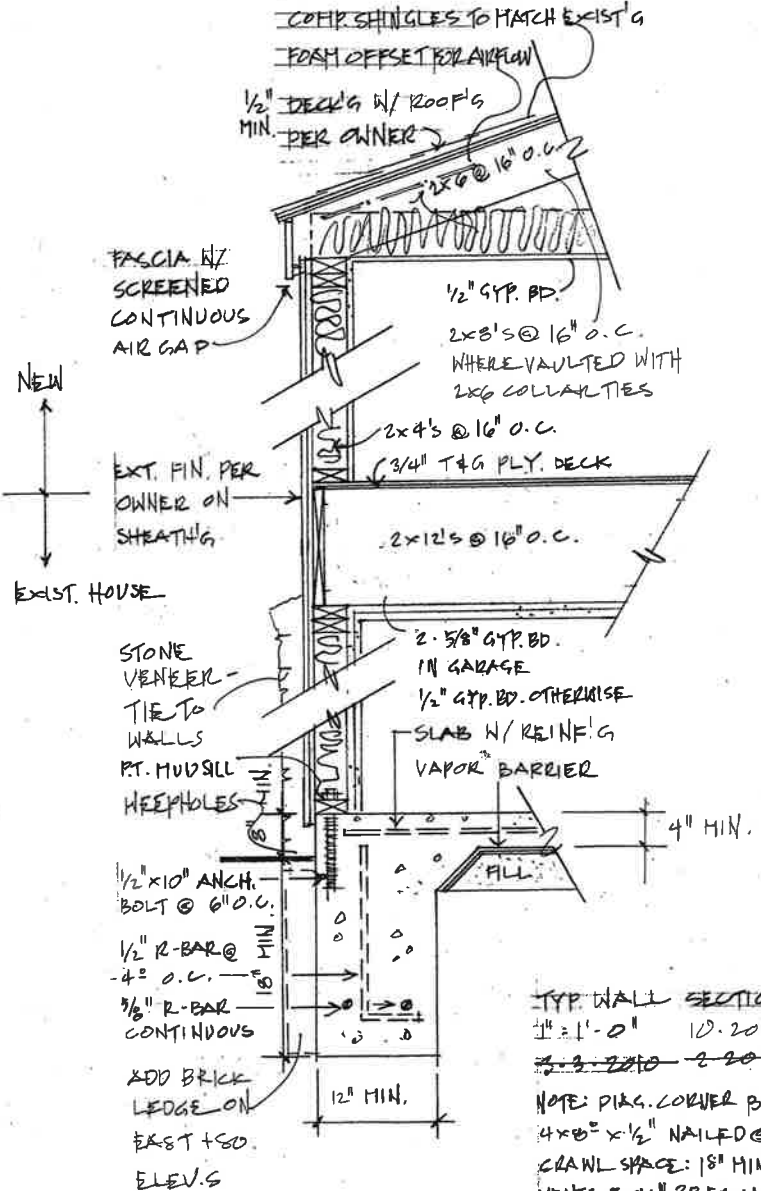 COMP. SHINGLES TO MATCH EXIST'G
FOAM OFFSET FOR AIRFLOW
1/2" DECK'G W/ ROOF'G
MIN. PER OWNER
2x6 @ 16" O.C.
FASCIA W/
SCREENED
CONTINUOUS
AIR GAP
1/2" GYP. BD.
2x8'S @ 16" O.C.
WHERE VAULTED WITH
2x6 COLLAR TIES
NEW
2x4'S @ 16" O.C.
3/4" T&G PLY. DECK
EXT. FIN. PER
OWNER ON
SHEATH'G
2x12'S @ 16" O.C.
EXIST. HOUSE
STONE
VENEER-
TIE TO
WALLS
2-5/8" GYP. BD.
IN GARAGE
1/2" GYP. BD. OTHERWISE
SLAB W/ REINF'G
VAPOR BARRIER
P.T. MUDSILL
WEEPHOLES
8" MIN.
4" MIN.
FILL
1/2"x10" ANCH.
BOLT @ 6" O.C.
1/2" R-BAR @
4° O.C.
18" MIN
5/8" R-BAR
CONTINUOUS
ADD BRICK
LEDGE ON
EAST + SO.
ELEV.S
12" MIN.
TYP. WALL SECTIO
1" = 1'-0" 10.20
3.3.2010 2-20
NOTE: DIAG. CORNER B
4x8° x 1/2" NAILED @
CRAWL SPACE: 18" MIN